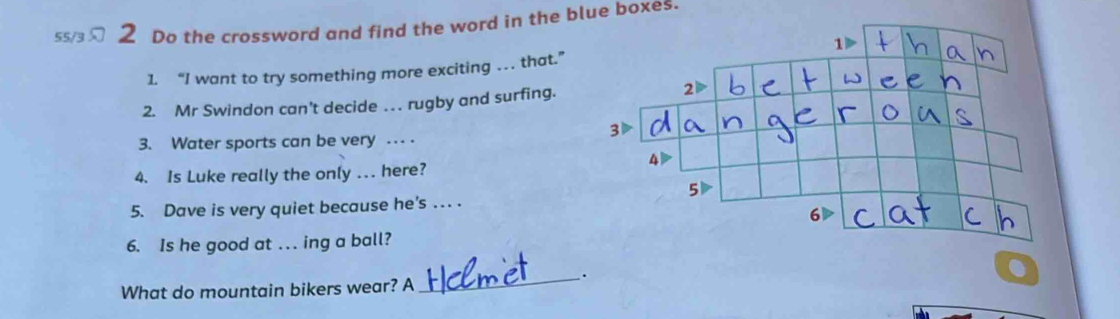 55/3 2 Do the crossword and find the word in the blue boxes.
1. "I want to try something more exciting ... that."
2. Mr Swindon can't decide ... rugby and surfing.
3. Water sports can be very ... .
4. Is Luke really the only ... here?
5. Dave is very quiet because he's ... .
6. Is he good at ... ing a ball?
What do mountain bikers wear? A Helmet .
1 than
2 between
3 dangerous
4
5
6 catch